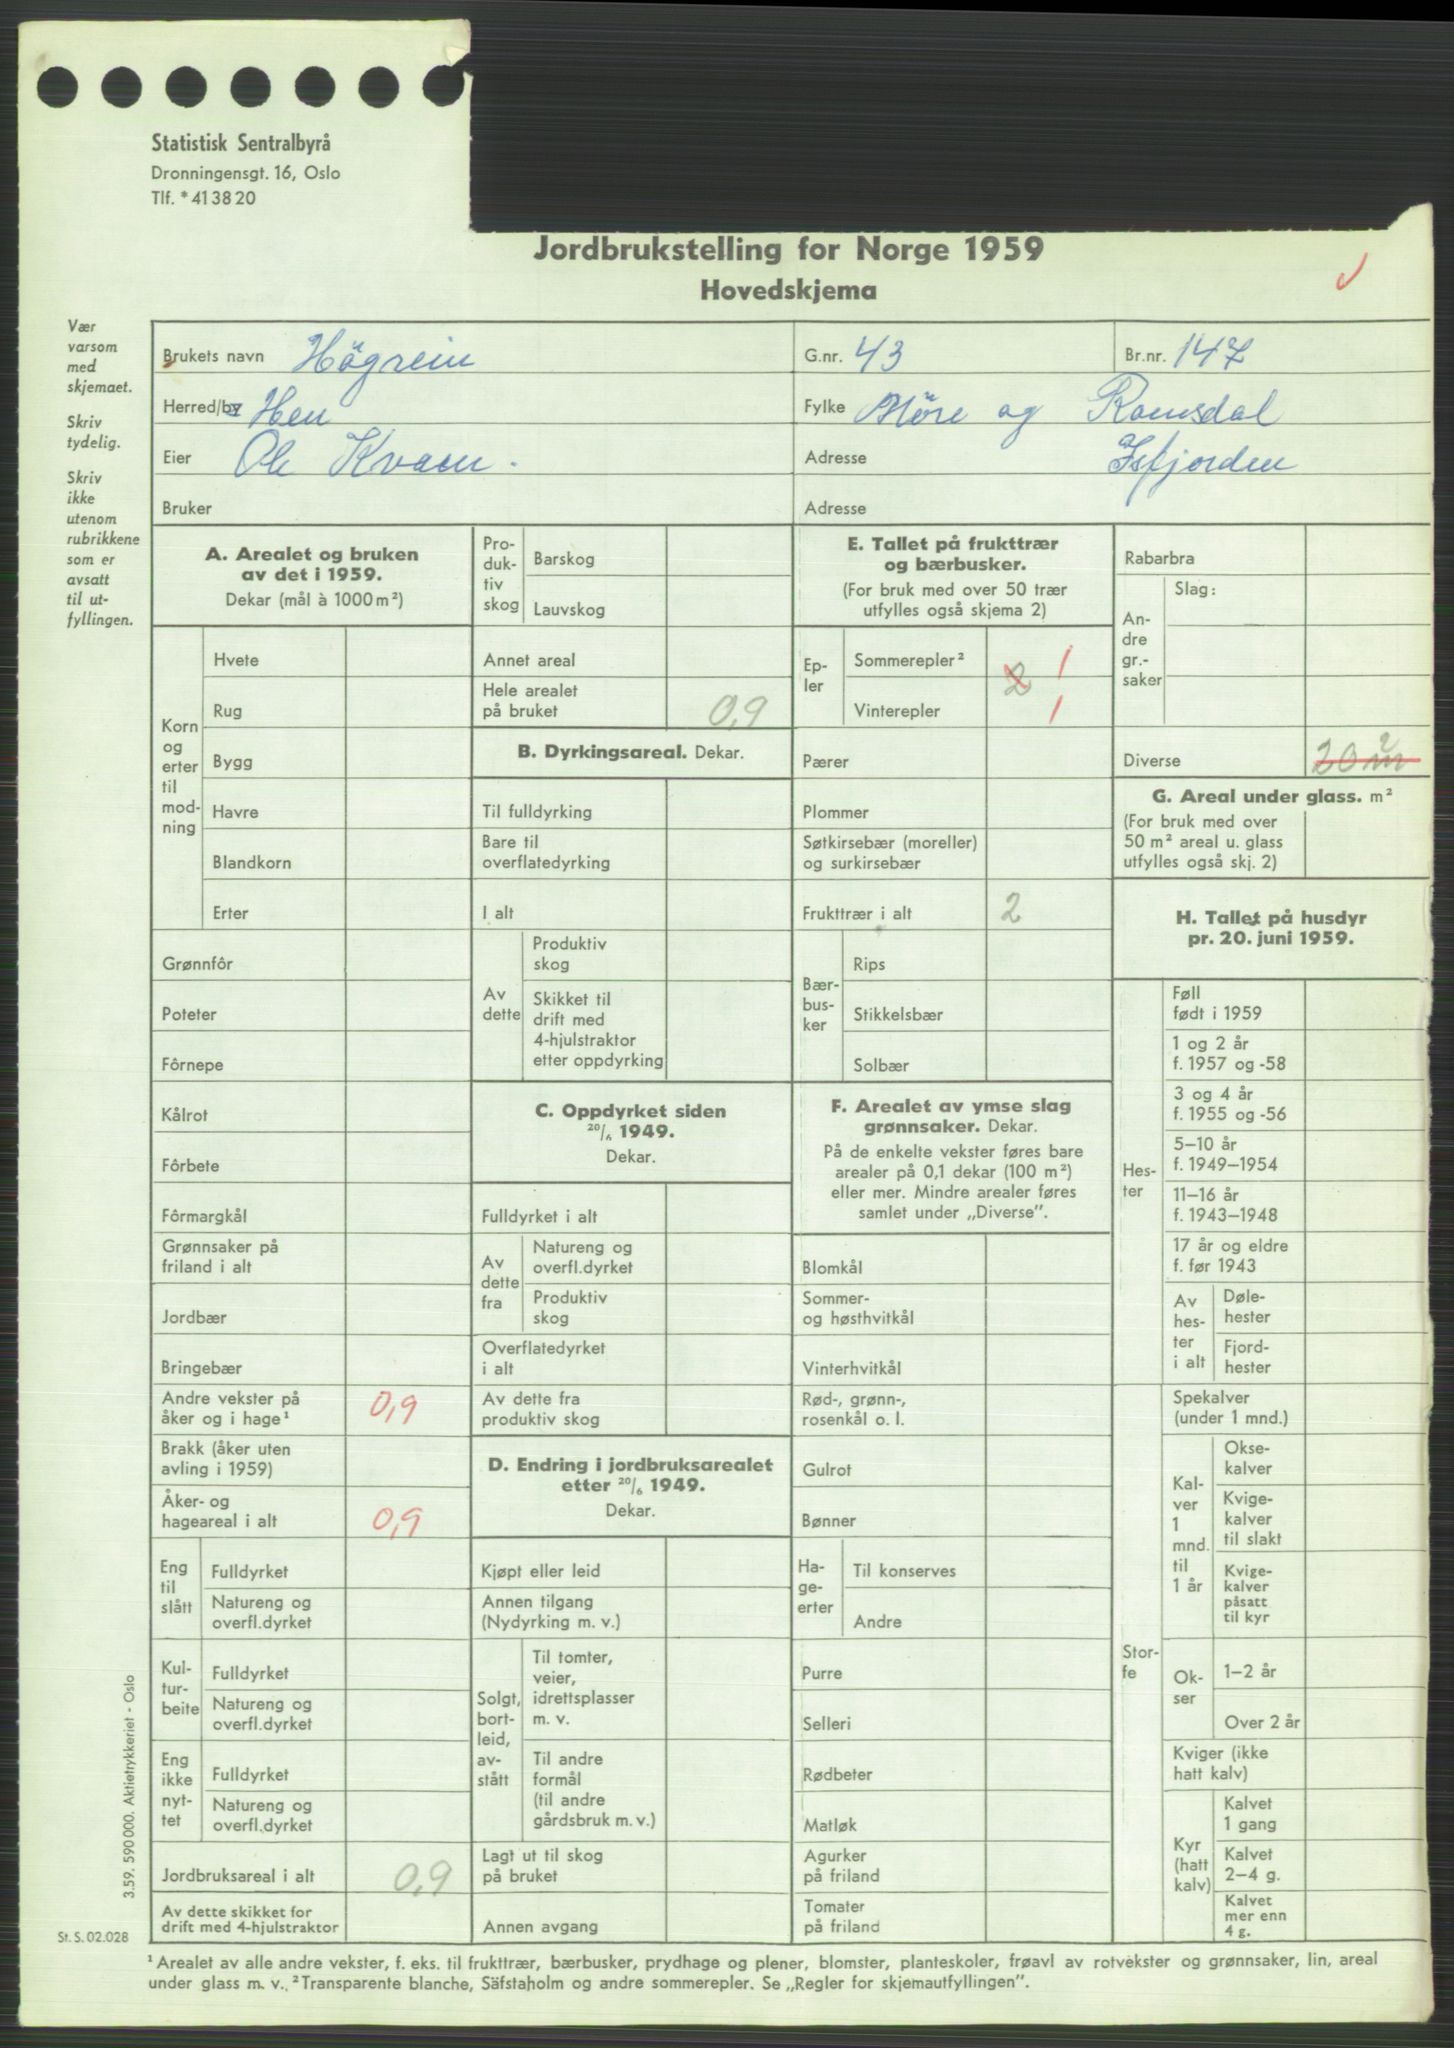 Statistisk Sentralbyrå
Dronningensgt. 16, Oslo
Tlf. * 41 38 20
Jordbrukstelling for Norge 1959
Hovedskjema
Vær
varsom
med
skjemaet.
Skriv
tydelig.
Skriv
ikke
utenom
rubrikkene
som er
avsatt
til ut-
fyllingen.
Brukets navn Högrein
G.nr. 43
Br.nr. 147
Herred/by Hen
Fylke Möre og Romsdal
Eier Ole Kvam.
Adresse Isfjorden
Bruker
Adresse
A. Arealet og bruken
av det i 1959.
Dekar (mål à 1000 m²)
Korn
og
erter
til
mod-
ning
Hvete
Rug
Bygg
Havre
Blandkorn
Erter
Grønnfôr
Poteter
Fôrnepe
Kålrot
Fôrbete
Fôrmargkål
Grønnsaker på
friland i alt
Jordbær
Bringebær
Andre vekster på
åker og i hage¹ 0,9
Brakk (åker uten
avling i 1959)
Åker- og
hageareal i alt 0,9
Eng
til
slått
Fulldyrket
Natureng og
overfl.dyrket
Kul-
tur-
beite
Fulldyrket
Natureng og
overfl.dyrket
Eng
ikke
nyt-
tet
Fulldyrket
Natureng og
overfl.dyrket
Jordbruksareal i alt 0,9
Av dette skikket for
drift med 4-hjulstraktor
Pro-
duk-
tiv
skog
Barskog
Lauvskog
Annet areal
Hele arealet
på bruket 0,9
B. Dyrkingsareal. Dekar.
Til fulldyrking
Bare til
overflatedyrking
I alt
Av
dette
Produktiv
skog
Skikket til
drift med
4-hjulstraktor
etter oppdyrking
C. Oppdyrket siden
20/6 1949.
Dekar.
Fulldyrket i alt
Av
dette
fra
Natureng og
overfl.dyrket
Produktiv
skog
Overflatedyrket
i alt
Av dette fra
produktiv skog
D. Endring i jordbruksarealet
etter 20/6 1949.
Dekar.
Kjøpt eller leid
Annen tilgang
(Nydyrking m. v.)
Solgt,
bort-
leid,
av-
stått
Til tomter,
veier,
idrettsplasser
m. v.
Til andre
formål
(til andre
gårdsbruk m. v.)
Lagt ut til skog
på bruket
Annen avgang
E. Tallet på frukttrær
og bærbusker.
(For bruk med over 50 trær
utfylles også skjema 2)
Ep-
ler
Sommerepler² 2 1
Vinterepler 1
Pærer
Plommer
Søtkirsebær (moreller)
og surkirsebær
Frukttrær i alt 2
Bær-
bus-
ker
Rips
Stikkelsbær
Solbær
F. Arealet av ymse slag
grønnsaker. Dekar.
På de enkelte vekster føres bare
arealer på 0,1 dekar (100 m²)
eller mer. Mindre arealer føres
samlet under „Diverse”.
Blomkål
Sommer-
og høsthvitkål
Vinterhvitkål
Rød-, grønn-,
rosenkål o. l.
Gulrot
Bønner
Ha-
ge-
erter
Til konserves
Andre
Purre
Selleri
Rødbeter
Matløk
Agurker
på friland
Tomater
på friland
Rabarbra
An-
dre
gr.-
saker
Slag:
Diverse 20 m²
G. Areal under glass. m²
(For bruk med over
50 m² areal u. glass
utfylles også skj. 2)
H. Tallet på husdyr
pr. 20. juni 1959.
Hes-
ter
Føll
født i 1959
1 og 2 år
f. 1957 og -58
3 og 4 år
f. 1955 og -56
5–10 år
f. 1949–1954
11–16 år
f. 1943–1948
17 år og eldre
f. før 1943
Av
hes-
ter
i alt
Døle-
hester
Fjord-
hester
Stor-
fe
Spekalver
(under 1 mnd.)
Kal-
ver
1
mnd.
til
1 år
Okse-
kalver
Kvige-
kalver
til slakt
Kvige-
kalver
påsatt
til kyr
Ok-
ser
1–2 år
Over 2 år
Kviger (ikke
hatt kalv)
Kyr
(hatt
kalv)
Kalvet
1 gang
Kalvet
2–4 g.
Kalvet
mer enn
4 g.
3.59. 590 000. Aktietrykkeriet - Oslo
St. S. 02.028
¹ Arealet av alle andre vekster, f. eks. til frukttrær, bærbusker, prydhage og plener, blomster, planteskoler, frøavl av rotvekster og grønnsaker, lin, areal
under glass m. v. ² Transparente blanche, Säfstaholm og andre sommerepler. Se „Regler for skjemautfyllingen”.